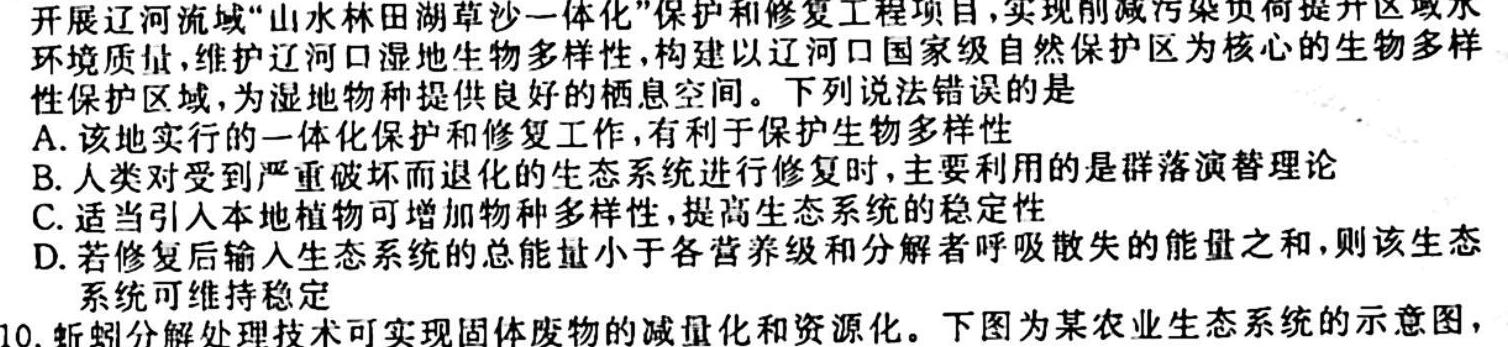 开展辽河流域“山水林田湖草沙一体化”保护和修复工程项目,实现削减污染负荷提升区域水
环境质量,维护辽河口湿地生物多样性,构建以辽河口国家级自然保护区为核心的生物多样
性保护区域,为湿地物种提供良好的栖息空间。下列说法错误的是
A. 该地实行的一体化保护和修复工作,有利于保护生物多样性
B. 人类对受到严重破坏而退化的生态系统进行修复时,主要利用的是群落演替理论
C. 适当引入本地植物可增加物种多样性,提高生态系统的稳定性
D. 若修复后输入生态系统的总能量小于各营养级和分解者呼吸散失的能量之和,则该生态
系统可维持稳定
10. 蚯蚓分解处理技术可实现固体废物的减量化和资源化。下图为某农业生态系统的示意图,